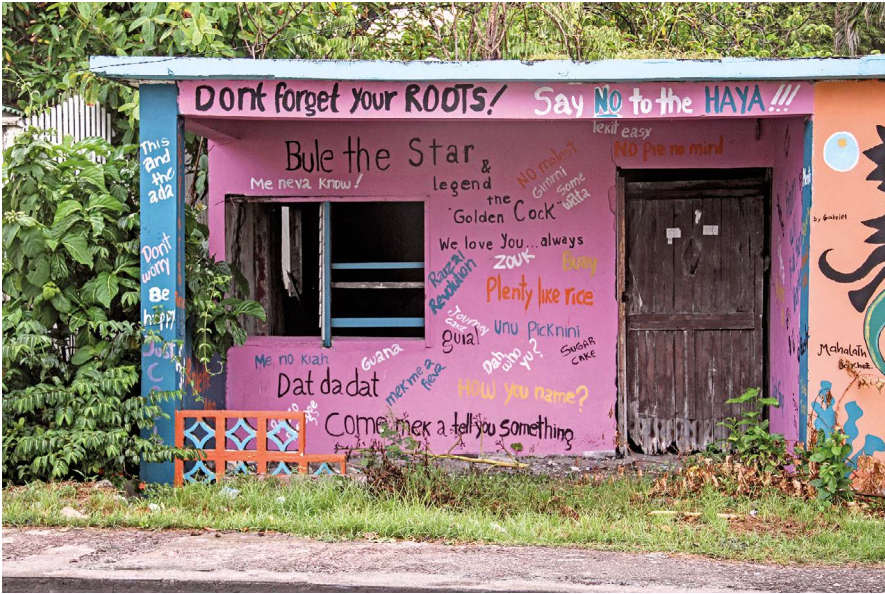 Dont forget your ROOTS! Say NO to the HAYA!!!
This
and
the
ada
Dont
worry
Be
happy
Just
Bule the Star
&
legend
the
"Golden Cock"
Me neva know!
lekit easy
NO molest
Gimmi
Some
walta
NO Pie no mind
We love you...always
ZOUK
Buay
Razzal
Revolution
Plenty like rice
Journey
cake
guial
Unu Picknini
Dah
who
yu?
SUGAR
CAKE
Me no kiah
Guana
Dat da dat
mek me a
fieva
HOW you name?
Come mek a tell you something
by Gabriel
Mahalath